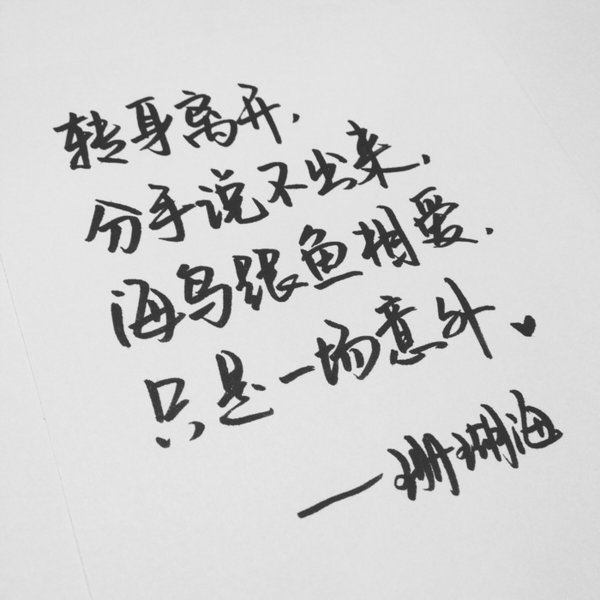 转身离开,
分手说不出来,
海鸟跟鱼相爱.
只是一场意外
——珊瑚海